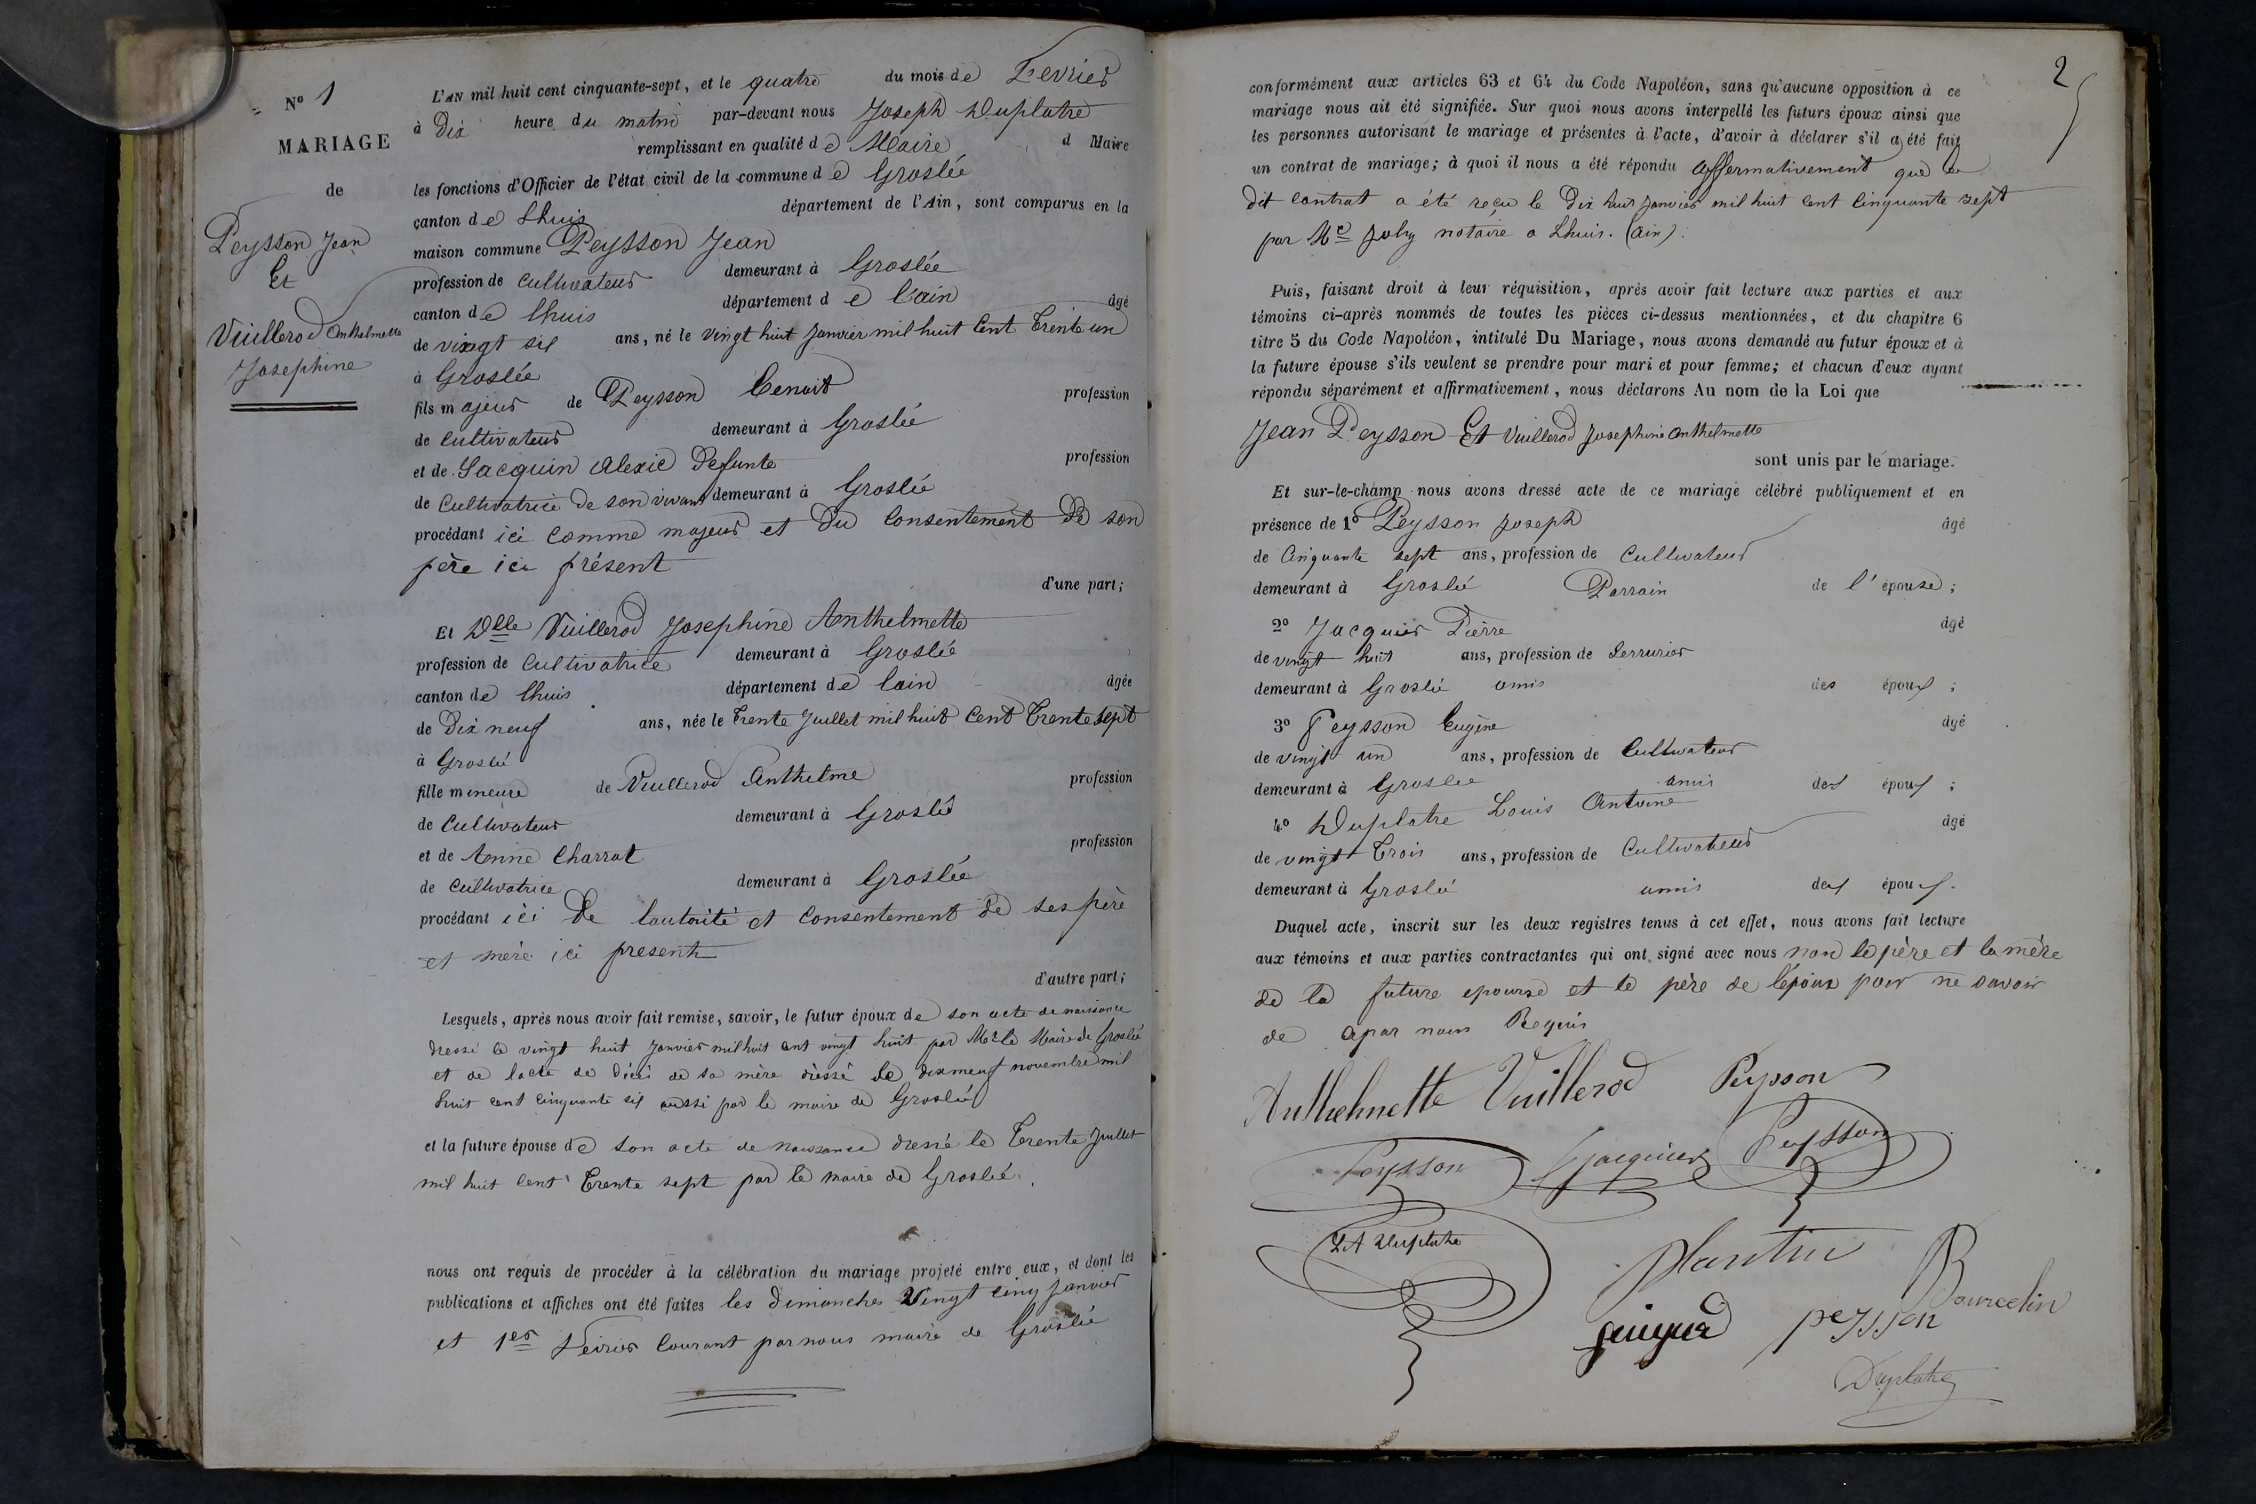 N° 1
MARIAGE
de
Peysson Jean
Et
Vuillerod Anthelmette
Josephine
L'AN mil huit cent cinquante-sept, et le quatre du mois de Fevrier
à Dix heure du matin par-devant nous Joseph Duplatre
remplissant en qualité de Maire d Maire
les fonctions d'Officier de l'état civil de la commune de Groslée
canton de Lhuis département de l'Ain, sont comparus en la
maison commune Peysson Jean
profession de cultivateur demeurant à Groslée
canton de lhuis département de l'ain âgé
de vingt six ans, né le vingt huit Janvier mil huit Cent Trente un
à Groslée
fils majeur de Peysson Benoit profession
de cultivateur demeurant à Groslée
et de Jacquin Alexie Defunte profession
de Cultivatrice de son vivant demeurant à Groslée
procédant ici comme majeur et Du Consentement De son
père ici présent
d'une part;
Et Delle Vuillerod Josephine Anthelmette
profession de cultivatrice demeurant à Groslée
canton de lhuis département de lain âgée
de Dix neuf ans, née le Trente Juillet mil huit Cent Trente sept
à Groslé
fille mineure de Vuillerod Anthelme profession
de Cultivateur demeurant à Groslée
et de Anne Charrat profession
de cultivatrice demeurant à Groslée
procédant ici De lautorité et Consentement de ses père
et mère ici present
d'autre part;
Lesquels, après nous avoir fait remise, savoir, le futur époux de son acte de naissance
dressé le vingt huit Janvier mil huit cent vingt huit par Mr le Maire de Groslée
et de lacte de décé de sa mère dressé le dix neuf novembre mil
huit cent cinquante six aussi par le maire de Groslée
et la future épouse de son acte de naissance dressé le Trente Juillet
mil huit Cent Trente sept par le maire de Groslée.
nous ont requis de procéder à la célébration du mariage projeté entre eux, et dont les
publications et affiches ont été faites les dimanches vingt cinq Janvier
et 1er Fevrier Courant par nous maire de Groslée
2
conformément aux articles 63 et 64 du Code Napoléon, sans qu'aucune opposition à ce
mariage nous ait été signifiée. Sur quoi nous avons interpellé les futurs époux ainsi que
les personnes autorisant le mariage et présentes à l'acte, d'avoir à déclarer s'il a été fait
un contrat de mariage; à quoi il nous a été répondu affermativement que le
dit contrat a été reçu le Dix huit Janvier mil huit Cent Cinquante sept
par Me Joly notaire a Lhuis. (ain).
Puis, faisant droit à leur réquisition, après avoir fait lecture aux parties et aux
témoins ci-après nommés de toutes les pièces ci-dessus mentionnées, et du chapitre 6
titre 5 du Code Napoléon, intitulé Du Mariage, nous avons demandé au futur époux et à
la future épouse s'ils veulent se prendre pour mari et pour femme; et chacun d'eux ayant
répondu séparément et affirmativement, nous déclarons Au nom de la Loi que
Jean Peysson Et Vuillerod Josephine Anthelmette
sont unis par le mariage.
Et sur-le-champ nous avons dressé acte de ce mariage célébré publiquement et en
présence de 1° Peysson Joseph âgé
de Cinquante sept ans, profession de Cultivateur
demeurant à Groslée Parrain de l'épouse;
2° Jacquier Pierre âgé
de vingt huit ans, profession de Serrurier
demeurant à Groslée amis des époux;
3° Peysson Eugène âgé
de vingt un ans, profession de Cultivateur
demeurant à Groslee amis des époux;
4° Duplatre Louis Antoine âgé
de vingt Trois ans, profession de Cultivateur
demeurant à Groslée amis des époux.
Duquel acte, inscrit sur les deux registres tenus à cet effet, nous avons fait lecture
aux témoins et aux parties contractantes qui ont signé avec nous non le père et la mère
de la future epouse et le père de lépoux pour ne savoir
de apar nous Requis
Anthelmette Vuillerod Peysson
Peysson Jacquier Peysson
LA Duplatre
Plantin
Bourcelin
peysson
Duplatre